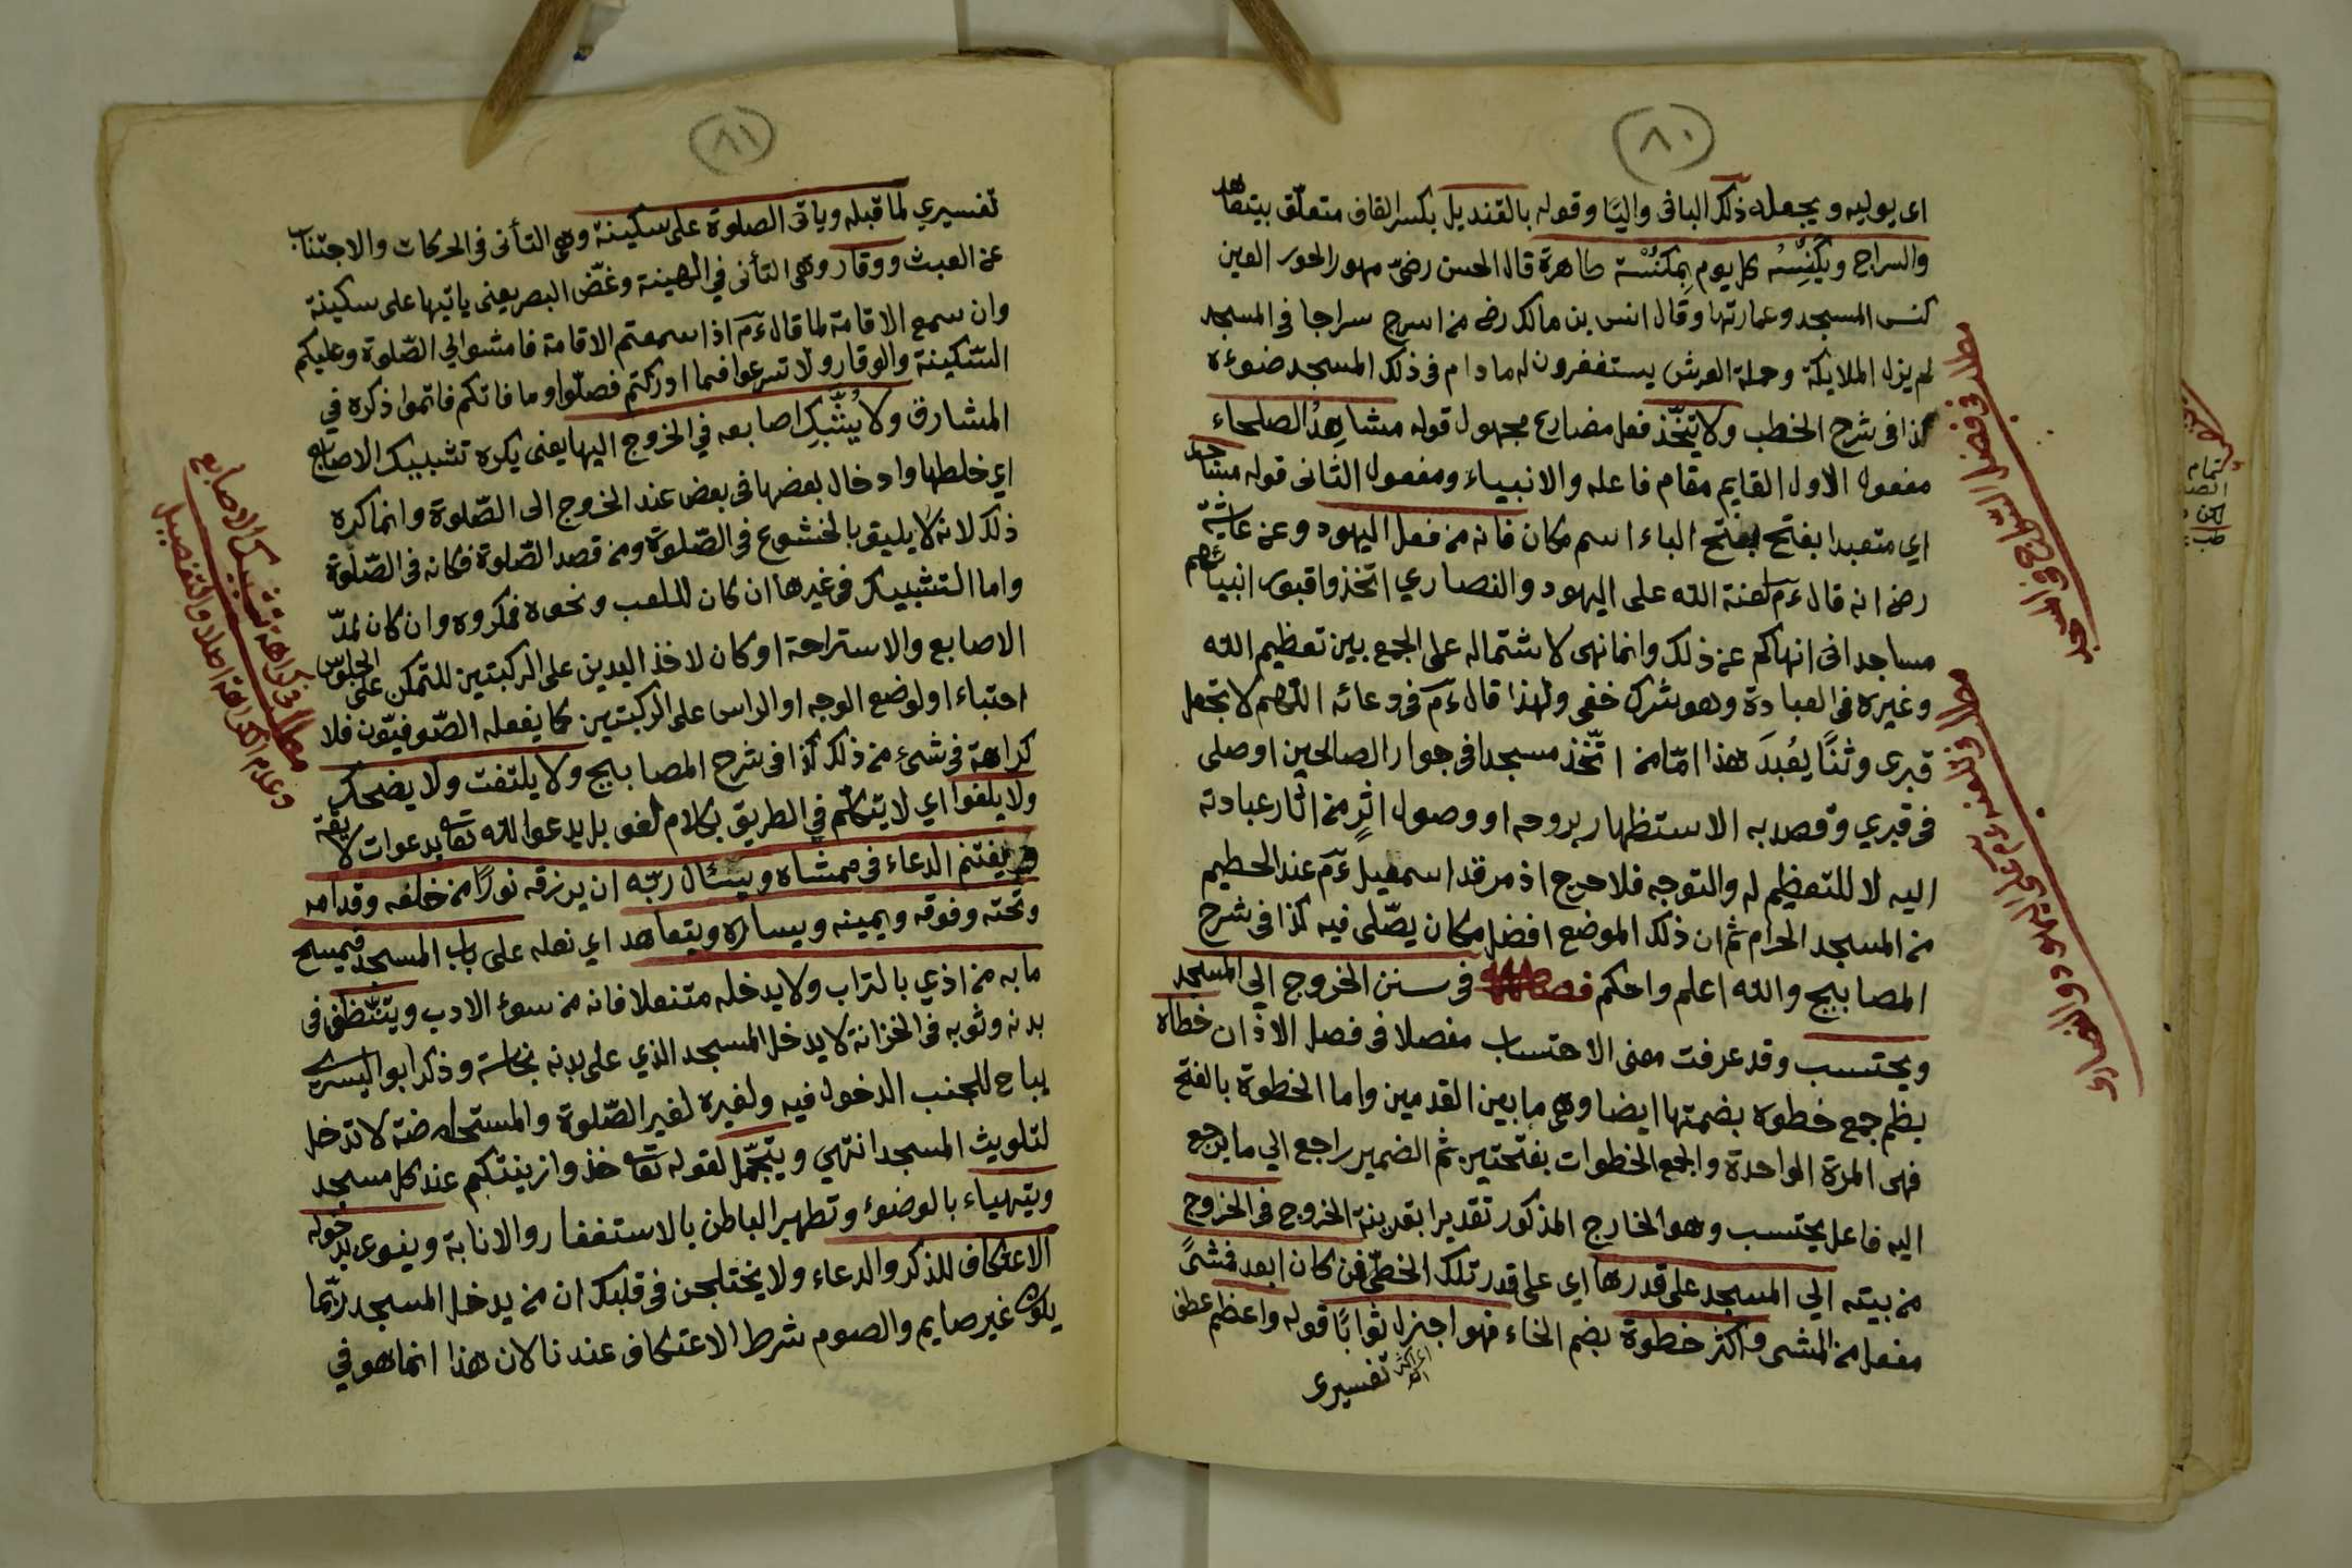 ٨٠
اى يوليه ويجعله ذلك البانى واليا وقوله بالقنديل بكسر القاف متعلق بيتعاهد
والسراج ويكنسه كل يوم بمكنسة طاهرة قال الحسن رضى مهور الحور العين
كنس المسجد وعمارتها وقال انس بن مالك رض من اسرج سراجا فى المسجد
لم يزل الملايكة وحملة العرش يستغفرون له ما دام فى ذلك المسجد ضوءه
كذا فى شرح الخطب ولا يتّخذ فعل مضارع مجهول قوله مشاهدُ الصلحاء
مفعول الاول القايم مقام فاعله والانبياء ومفعول الثانى قوله مساجد
اي متعبدا بفتح بفتح الباء اسم مكان فانه من فعل اليهود وعن عائشة
رض انه قال ءم لعنة الله على اليهود والنصاري اتخذوا قبور انبيائهم
مساجد انى انهاكم عن ذلك وانما نهى لاشتماله على الجمع بين تعظيم الله
وغيره فى العبادة وهو شرك خفى ولهذا قال ءم فى دعائه اللهم لا تجعل
قبرى وثنًا يُعْبدَ هذا امّا من اتّخذ مسجدا فى جوار الصالحين او صلى
فى قبري وقصد به الاستظهار بروحه او وصول اثرٍ من اثار عبادته
اليه لا للتعظيم له والتوجه فلا حرج اذ مرقد اسمعيل ءم عند الحطيم
من المسجد الحرام ثم ان ذلك الموضع افضل مكان يصّلى فيه كذا فى شرح
المصابيح والله اعلم واحكم فصل فى سنن الخروج الى المسجد
ويحتسب وقد عرفت معنى الاحتساب مفصلا فى فصل الاذان خطاه
بظم جمع خطوه بضمتها ايضا وهى ما بين القدمين واما الخطوة بالفتح
فهى المرة الواحدة والجمع الخطوات بفتحتين ثم الضمير راجع الي ما يرجع
اليه فاعل يحتسب وهو الخارج المذكور تقديرا بقرينة الخروج فى الخروج
من بيته الي المسجد على قدرها اي على قدر تلك الخطّى فمن كان ابعد فمشىً
مفعل من المشى واكثر خطوة بضم الخاء فهو اجزل ثوابًا قوله واعظم عطف
تفسيرى
مطلب فى فضل السراج وكنس المساجد
٨١
تفسيري لما قبله وياتى الصلوة على سكينة وهى التأنى فى الحركات والاجتناب
عن العبث ووقار وهى التأنى في الهيئة وغضّ البصر يعنى ياتيها على سكينة
وان سمع الاقامة لما قال ءم اذا سمعتم الاقامة فامشوا الي الصّلوة وعليكم
السّكينة والوقار ولا تسرعوا فما ادركتم فصلّوا وما فاتكم فاتموا ذكره في
المشارق ولا يُشّبك اصابعه في الخروج اليها يعنى يكره تشبيك الاصابع
اي خلطها وادخال بعضها فى بعض عند الخروج الى الصّلوة وانما كره
ذلك لانه لا يليق بالخشوع فى الصّلوة ومن قصد الصّلوة فكانه فى الصّلوة
واما التشبيك فى غيرها ان كان للعب ونحوه فمكروه وان كان لمدّ
الاصابع والاستراحة او كان لاخذ اليدين على الركبتين للتمكن على الجلوس
احتباء او لوضع الوجه او الراس على الركبتين كما يفعله الصّوفيّون فلا
كراهة فى شئ من ذلك كذا فى شرح المصابيح ولا يلتفت ولا يضحك
ولا يلغوا اي لا يتكلّم في الطريق بكلام لغو بل يدعوا لله تعا بدعوات لايقة
ويغتنم الدعاء فى ممشاه ويسئال ربّه ان يرزقه نورًا من خلفه وقدامه
وتحته وفوقه ويمينه ويساره ويتعاهد اي نعله على باب المسجد فيمسح
ما به من اذي بالتراب ولا يدخله متنعلا فانه من سوء الادب ويتنظّف فى
بدنه وثوبه فى الخزانة لا يدخل المسجد الذي على بدنه نجاسة وذكر ابو اليسر
يباح للجنب الدخول فيه ولغيره لغير الصّلوة والمستحاضة لا تدخل
لتلويث المسجد انتهي ويتجّمل لقوله تعا خذوا زينتكم عند كل مسجد
ويتهياء بالوضوء وتطهير الباطن بالاستغفار والانابة وينوى بدخوله
الاعتكاف للذكر والدعاء ولا يختلجن فى قلبك ان من يدخل المسجد ربّما
يكون غير صايم والصوم شرط الاعتكاف عندنا لان هذا انما هو في
مطلب فى كراهة تشبيك الاصابع
وعدم الكراهة اصلا والتفصيل